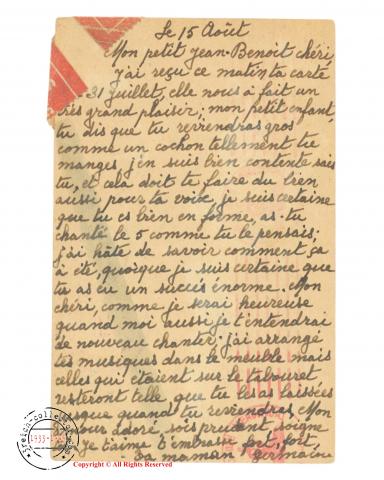 Le 15 Août
Mon petit Jean-Benoit chéri,
j'ai reçu ce matin ta carte
31 Juillet, elle nous a fait un
très grand plaisir; mon petit enfant,
tu dis que tu reviendras gros
comme un cochon tellement tu
manges, j'en suis bien contente sais
tu, et cela doit te faire du bien
aussi pour ta voix, je suis certaine
que tu es bien en forme, as-tu
chanté le 5 comme tu le pensais;
j'ai hâte de savoir comment ça
a été, quoique je suis certaine que
tu as eu un succés énorme. Mon
chéri, comme je serai heureuse
quand moi aussi je t'entendrai
de nouveau chanter; j'ai arrangé
tes musiques dans le meuble mais
celles qui étaient sur le tabouret
resteront telle que tu les as laissées
jusque quand tu reviendras, Mon
adoré, sois prudent, soigne
je t'aime t'embrasse fort, fort,
Ta maman Germaine
1933-
Copyright © All Rights Reserved